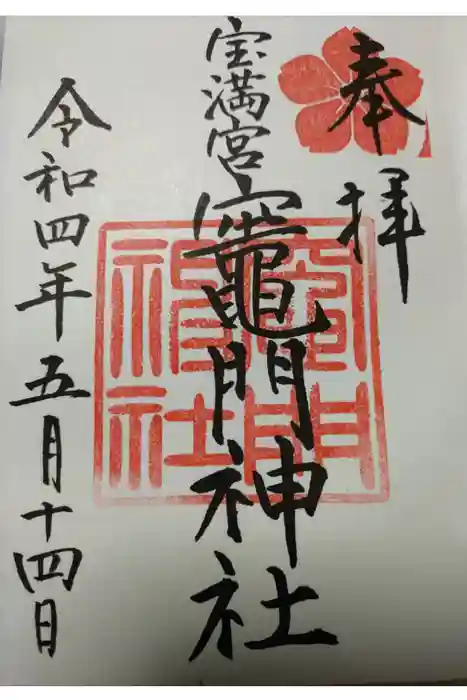 奉拝
宝満宮
竈門神社
令和四年五月十四日
竈門神社